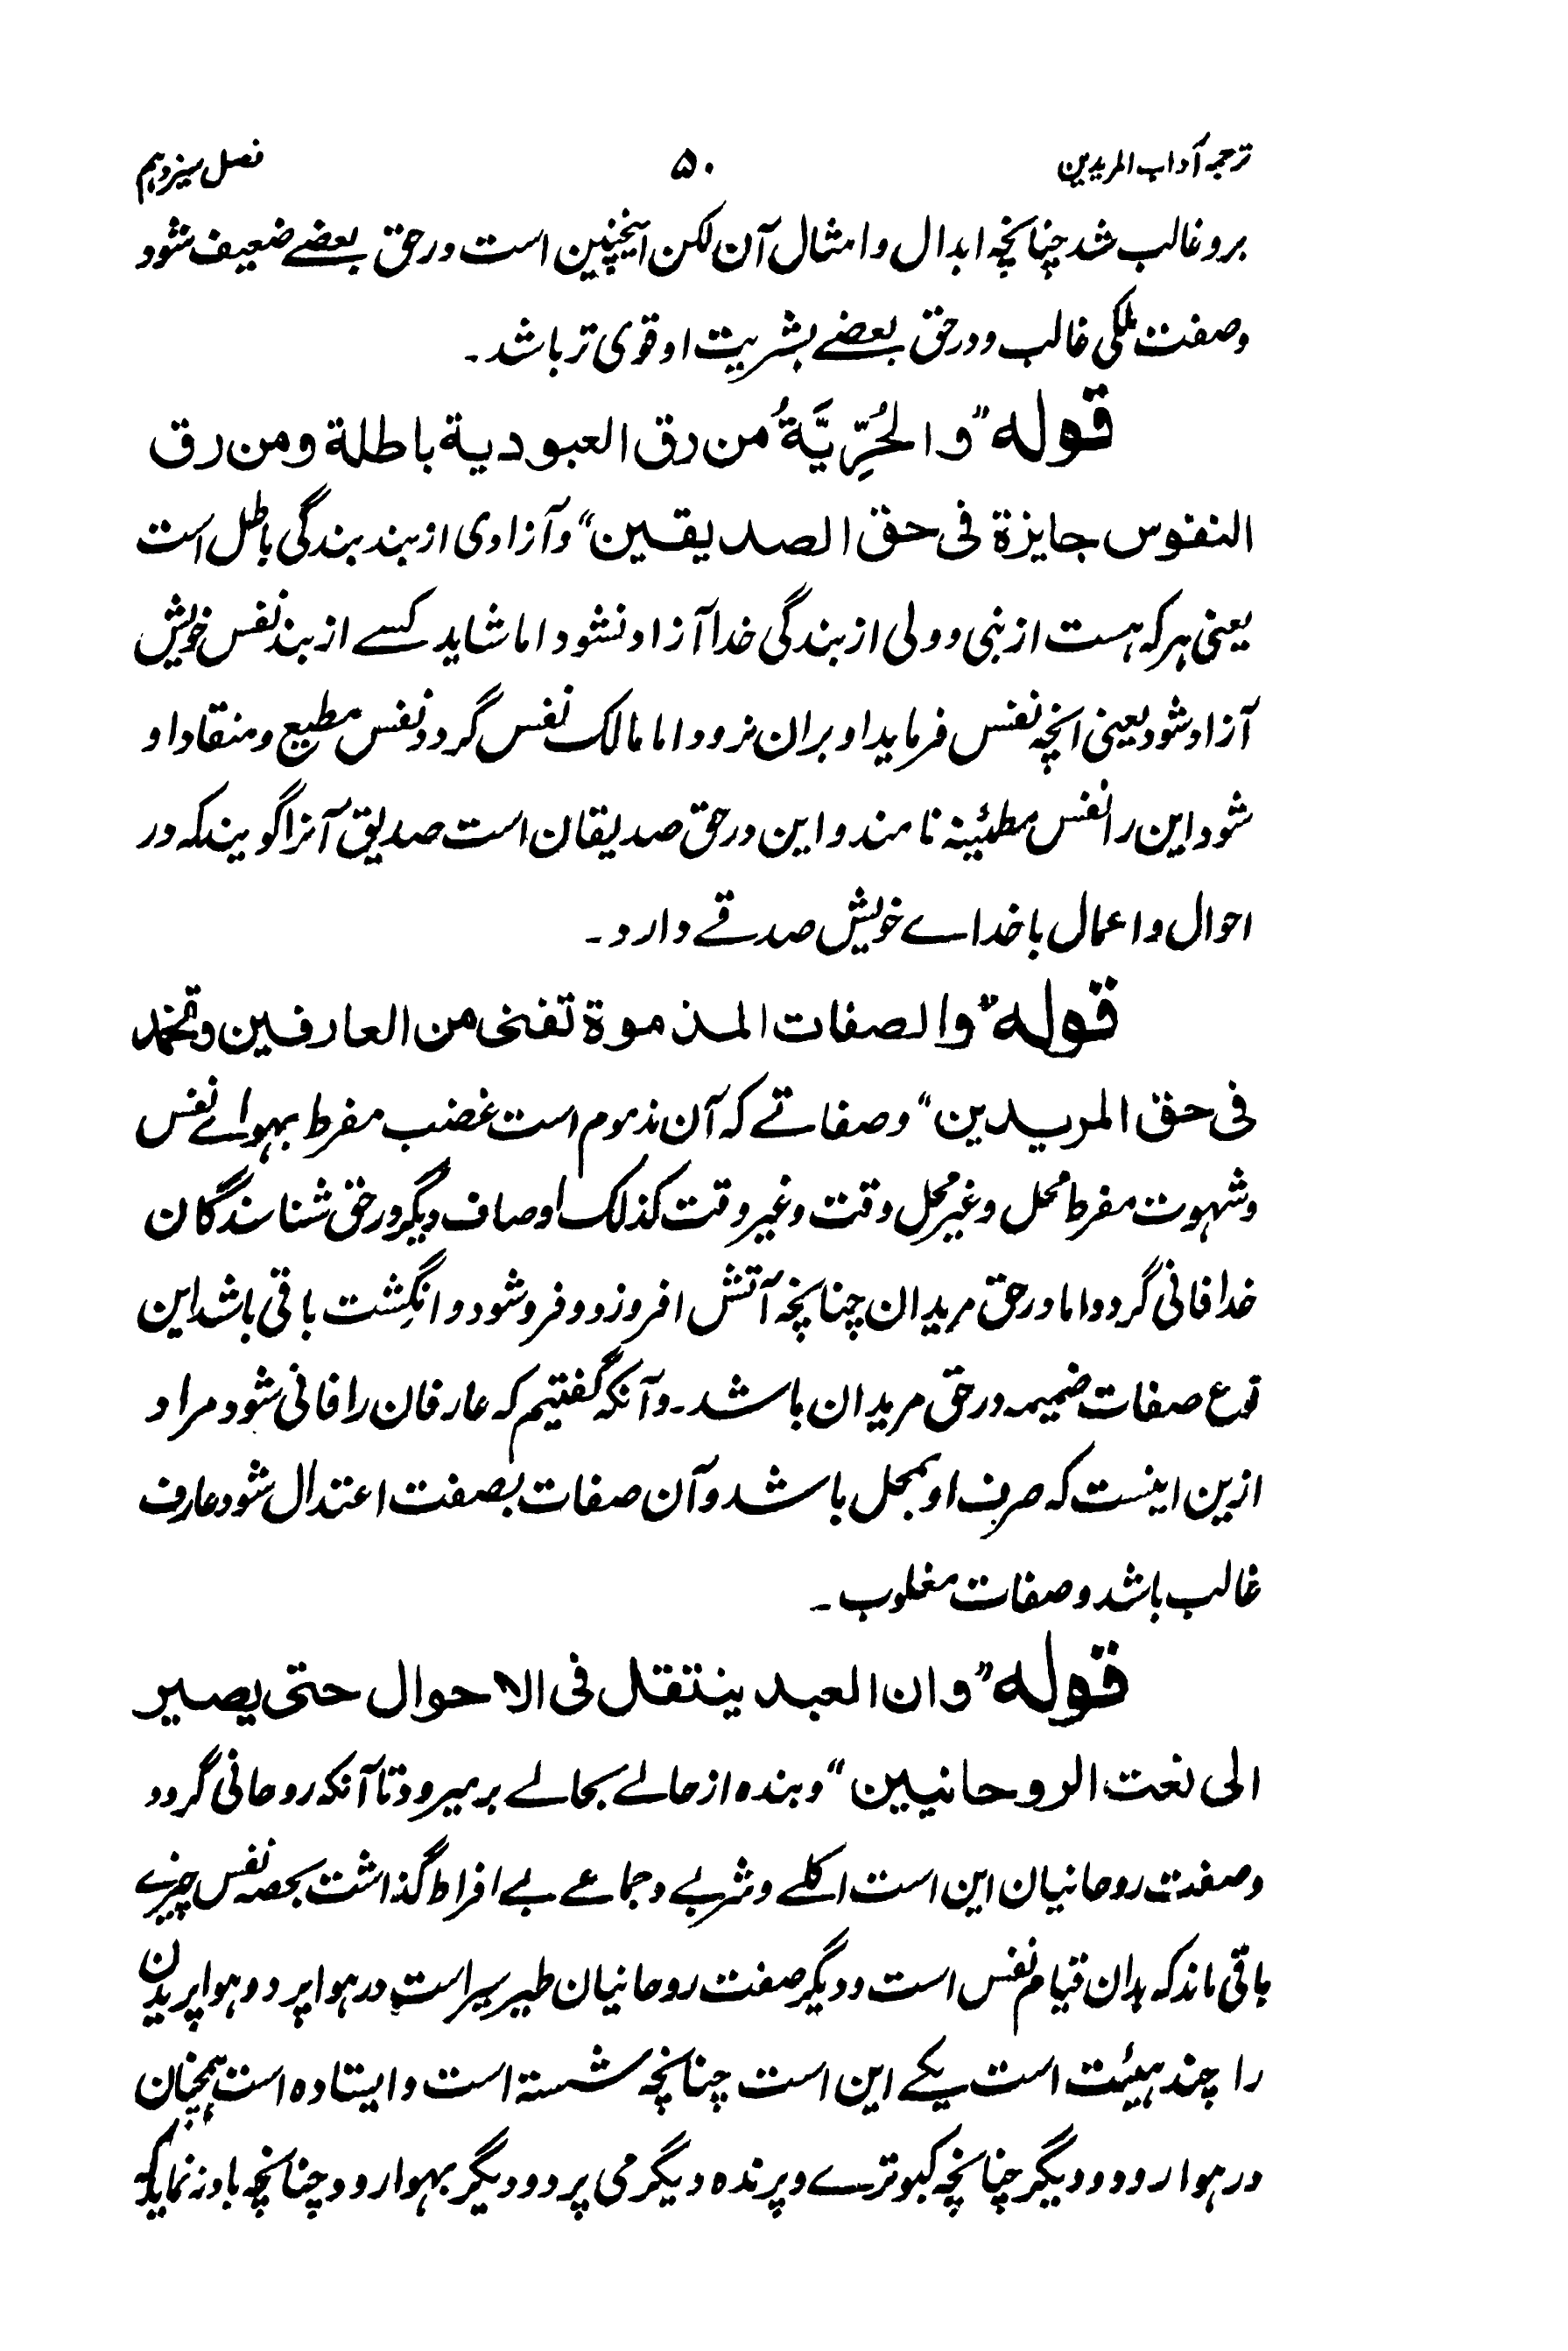 ترجمہ آداب المریدین ۵۰ فصل سیزدہم
بروغالب شد چنانچہ ابدال وامثال آن لکن اینچنین است درحق بعضے ضعیف شود
وصفت ملکی غالب ودرحق بعضے بشریت او قوی تر باشد۔
قولہ "والحُرِّیَّةُ من رق العبودیة باطلة ومن رق
النفوس جایزة فی حق الصدیقین" وآزادی از بند بندگی باطل است
یعنی ہرکہ ہست از نبی وولی از بندگی خدا آزاد نشود اما شاید کسے از بند نفس خویش
آزاد شود یعنی انچہ نفس فرماید او بران نرود اما مالک نفس گردد نفس مطیع ومنقاد او
شود این را نفس مطئینہ نامند و این درحق صدیقان است صدیق آنرا گویندکہ در
احوال واعمال باخداے خویش صدقے دارد۔
قولہ "والصفات المذموة تفنی من العارفین وتخمد
فی حق المریدین" وصفاتے کہ آن مذموم است غضب مفرط بہواے نفس
وشہوت مفرط محل وغیر محل وقت وغیر وقت کذلک اوصاف دیگر درحق شناسندگان
خدا فانی گردد اما درحق مریدان چنانچہ آتش افروزد وفرو شود و انگِشت باقی باشد این
نوع صفات ضمیمہ درحق مریدان باشد۔ وآنکہ گفتیم کہ عارفان را فانی شود مراد
ازین اینست کہ صرف او بمحل باشد وآن صفات بصفت اعتدال شود عارف
غالب باشد وصفات مغلوب۔
قولہ "وان العبد ینتقل فی الاحوال حتی یصیر
الی نعت الروحانیین" وبندہ از حالے بحالے برمیرود تا آنکہ روحانی گردد
وصفت روحانیان این است اکلے وشربے وجماعے بے افراط گذاشت بحصہ نفس چیزے
باقی ماند کہ بدان قیام نفس است ودیگر صفت روحانیان طیر سیر است در ہوا پرد وہوا پریدن
را چند ہیئت است یکے این است چنانچہ شستہ است وایستادہ است ہمچنان
درہوا رود ودیگر چنانچہ کبوترے وپرندہ دیگر می پرد ودیگر بہوا رود چنانچہ باد نہ نماید کہ